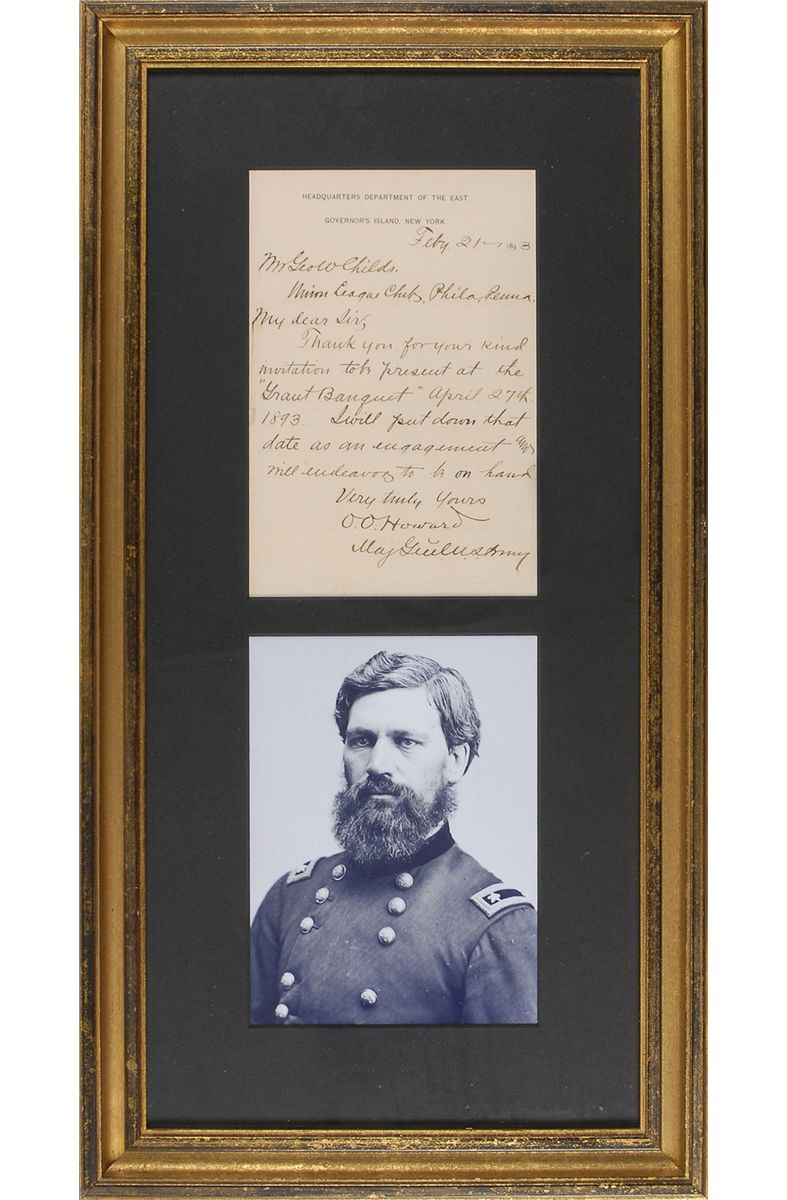 HEADQUARTERS DEPARTMENT OF THE EAST.
GOVERNOR'S ISLAND, NEW YORK.
Feby. 21— 1893
Mr Geo W Childs.
Union League Club, Phila, Penna.
My dear Sir,
Thank you for your kind
invitation to be present at the
"Grant Banquet" April 27th
1893. I will put down that
date as an engagement and
will endeavor to be on hand
Very truly Yours
O.O. Howard
Maj Gen'l U.S. Army